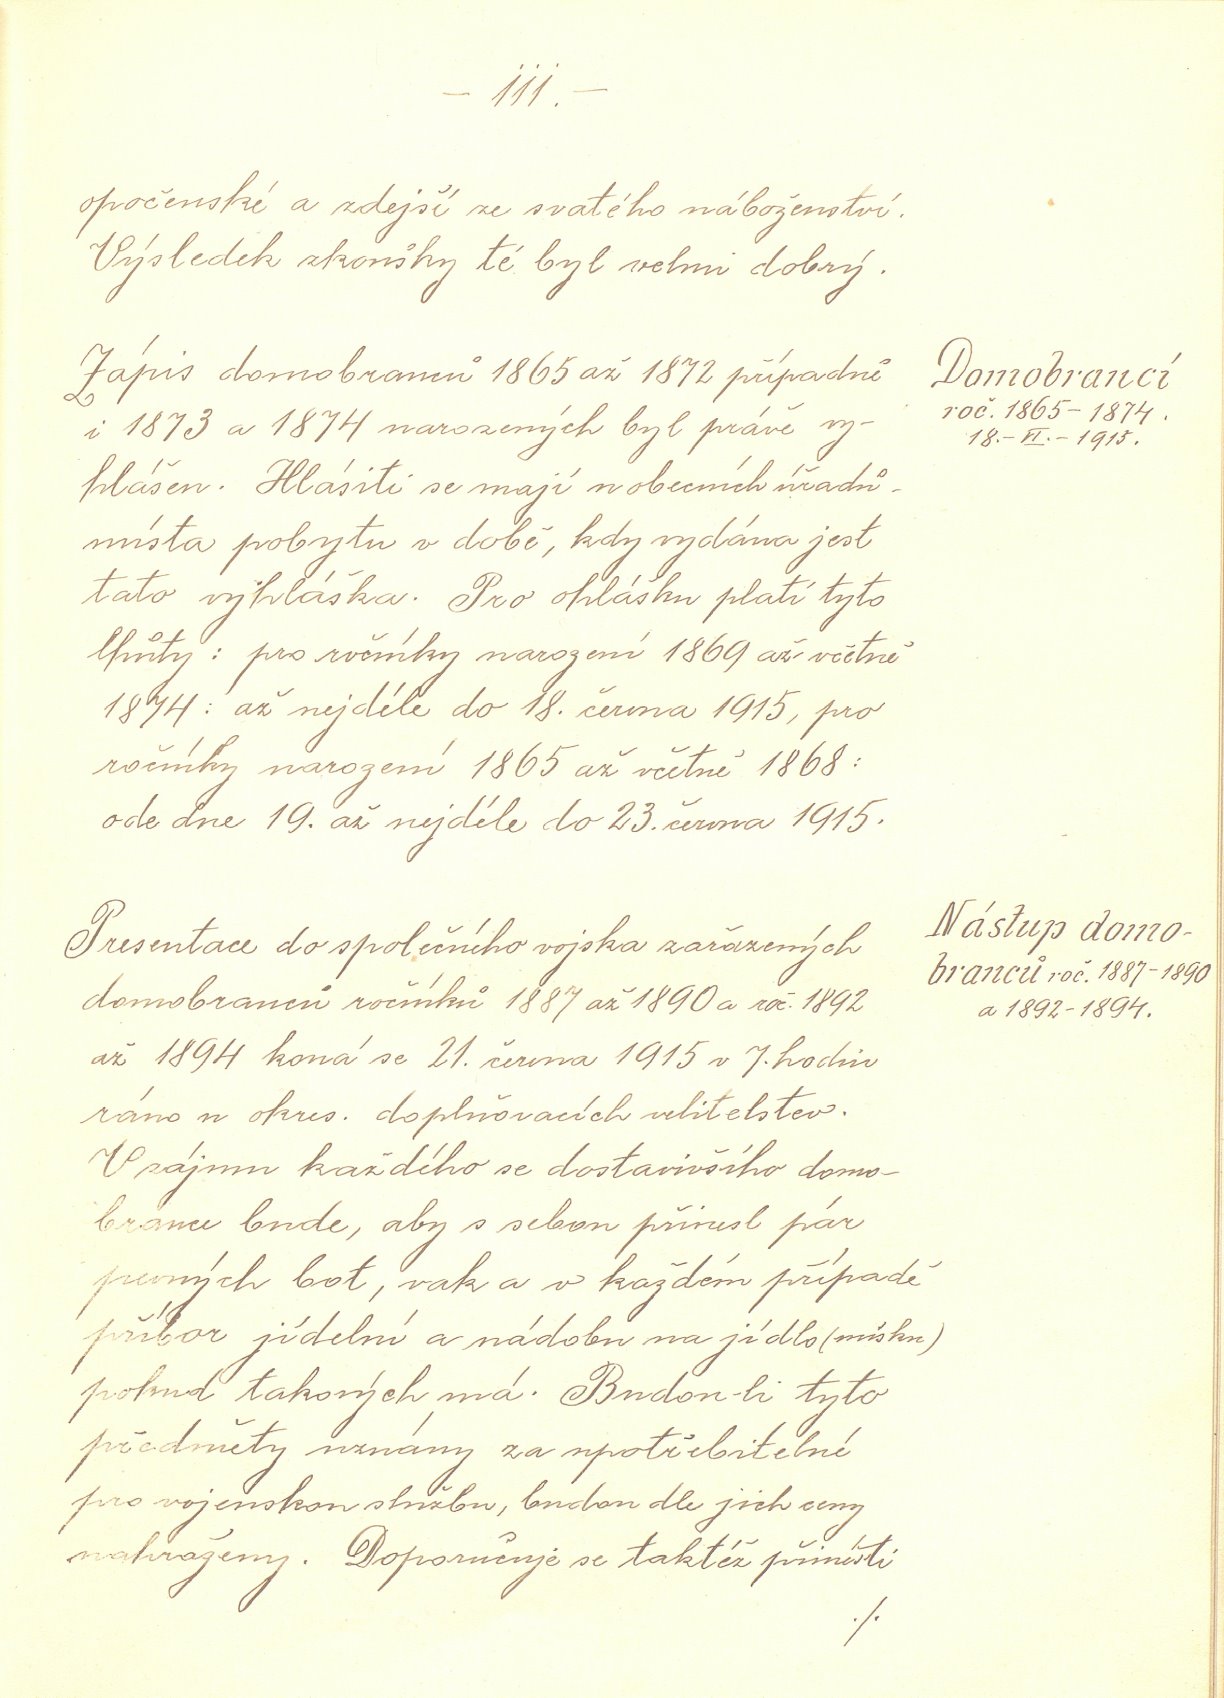 – 111. –
opočenské a zdejší ze svatého náboženství.
Výsledek zkoušky té byl velmi dobrý.
Zápis domobranců 1865 až 1872 případně
i 1873 a 1874 narozených byl právě vy-
hlášen. Hlásiti se mají u obecních úřadů
místa pobytu v době, kdy vydána jest
tato vyhláška. Pro ohlášku platí tyto
lhůty: pro ročníky narození 1869 až včetně
1874: až nejdéle do 18. června 1915, pro
ročníky narození 1865 až včetně 1868:
ode dne 19. až nejdéle do 23. června 1915.
Domobranci
roč. 1865–1874.
18.–VI.–1915.
Presentace do společného vojska zařazených
domobranců ročníků 1887 až 1890 a roč. 1892
až 1894 koná se 21. června 1915 v 7. hodin
ráno u okres. doplňovacích velitelstev.
V zájmu každého se dostavivšího domo-
brance bude, aby s sebou přinesl pár
pevných bot, vak a v každém případě
příbor jídelní a nádobu na jídlo (mísku)
pokud takových má. Budou-li tyto
předměty uznány za upotřebitelné
pro vojenskou službu, budou dle jich ceny
nahraženy. Doporučuje se taktéž přinésti
./.
Nástup domo-
branců roč. 1887–1890
a 1892–1894.